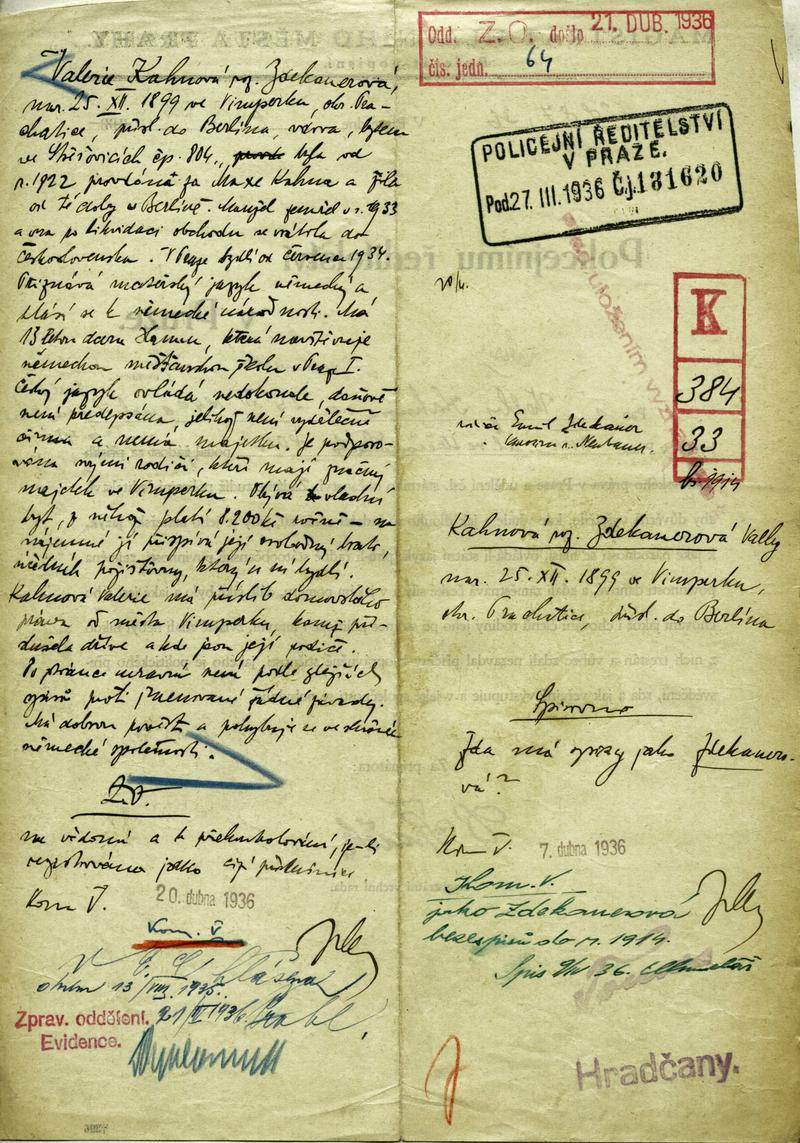 Valerie Kahnová roz. Zdekauerová,
nar. 25. XII. 1899 ve Vimperku, okr. Pra-
chatice, přísl. do Berlína, vdova, bytem
ve Střešovicích čp. 804, byla od
r. 1922 provdána za Maxe Kahna a žila
od té doby v Berlíně. Manžel zemřel v r. 1933
a ona po likvidaci obchodu se vrátila do
Československa. V Praze bydlí od července 1934.
Přiznává mateřský jazyk německý a
hlásí se k německé národnosti. Má
13 letou dceru Hannu, která navštěvuje
německou měšťanskou školu v Praze I.
Český jazyk ovládá nedokonale, daňově
není předepsána, jelikož není výdělečně
činna a nemá majetku. Je podporo-
vána svými rodiči, kteří mají značný
majetek ve Vimperku. Obývá vlastní
byt, z něhož platí 8.200 Kč ročně – na
nájemné jí přispívá její svobodný bratr,
úředník pojišťovny, který u ní bydlí.
Kahnová Valerie má příslib domovského
práva od města Vimperku, kamž pří-
slušela dříve a kde jsou její rodiče.
Po stránce mravní není podle zdejších
zpráv proti jmenované žádné závady.
Má dobrou pověst a pohybuje se ve slušné
německé společnosti.
Z.O.
na vědomí a k přehodnocení, je-li
registrována jako cizí příslušnice
Kom V.
20. dubna 1936
Kom. V
13/VIII. 1935.
Zprav. oddělení.
Evidence.
Odd. Z.O. došlo 21. DUB. 1936
čís. jedn. 64
POLICEJNÍ ŘEDITELSTVÍ
V PRAZE.
Pod. 27. III. 1936 Čj. 131620
K
384
33
rodiče Emil Zdekauer
Kahnová roz. Zdekauerová Vally
nar. 25. XII. 1899 ve Vimperku,
okr. Prachatice, přísl. do Berlína
Spisovno
Zda má spisy jako Zdekauero-
vá?
Kom V.
7. dubna 1936
Kom. V.
jako Zdekauerová
beze spisů do r. 1914.
Hradčany.